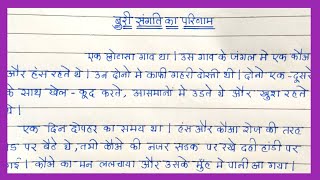 बुरी संगति का परिणाम
एक छोटासा गाव था। उस गाव के जंगल मे एक कौआ
और हंस रहते थे। उन दोनो मे काफी गहरी दोस्ती थी। दोनो एक-दूसरे
के साथ खेल-कूद करते, आसमानो मे उडते थे और खुश रहते
थे।
एक दिन दोपहर का समय था। हंस और कौआ रोज की तरह
पर बैठे थे, तभी कौओ की नजर सडक पर रखे दही हांडी पर
गई। कौओ का मन ललचाया और उसके मुँह मे पानी आ गया।